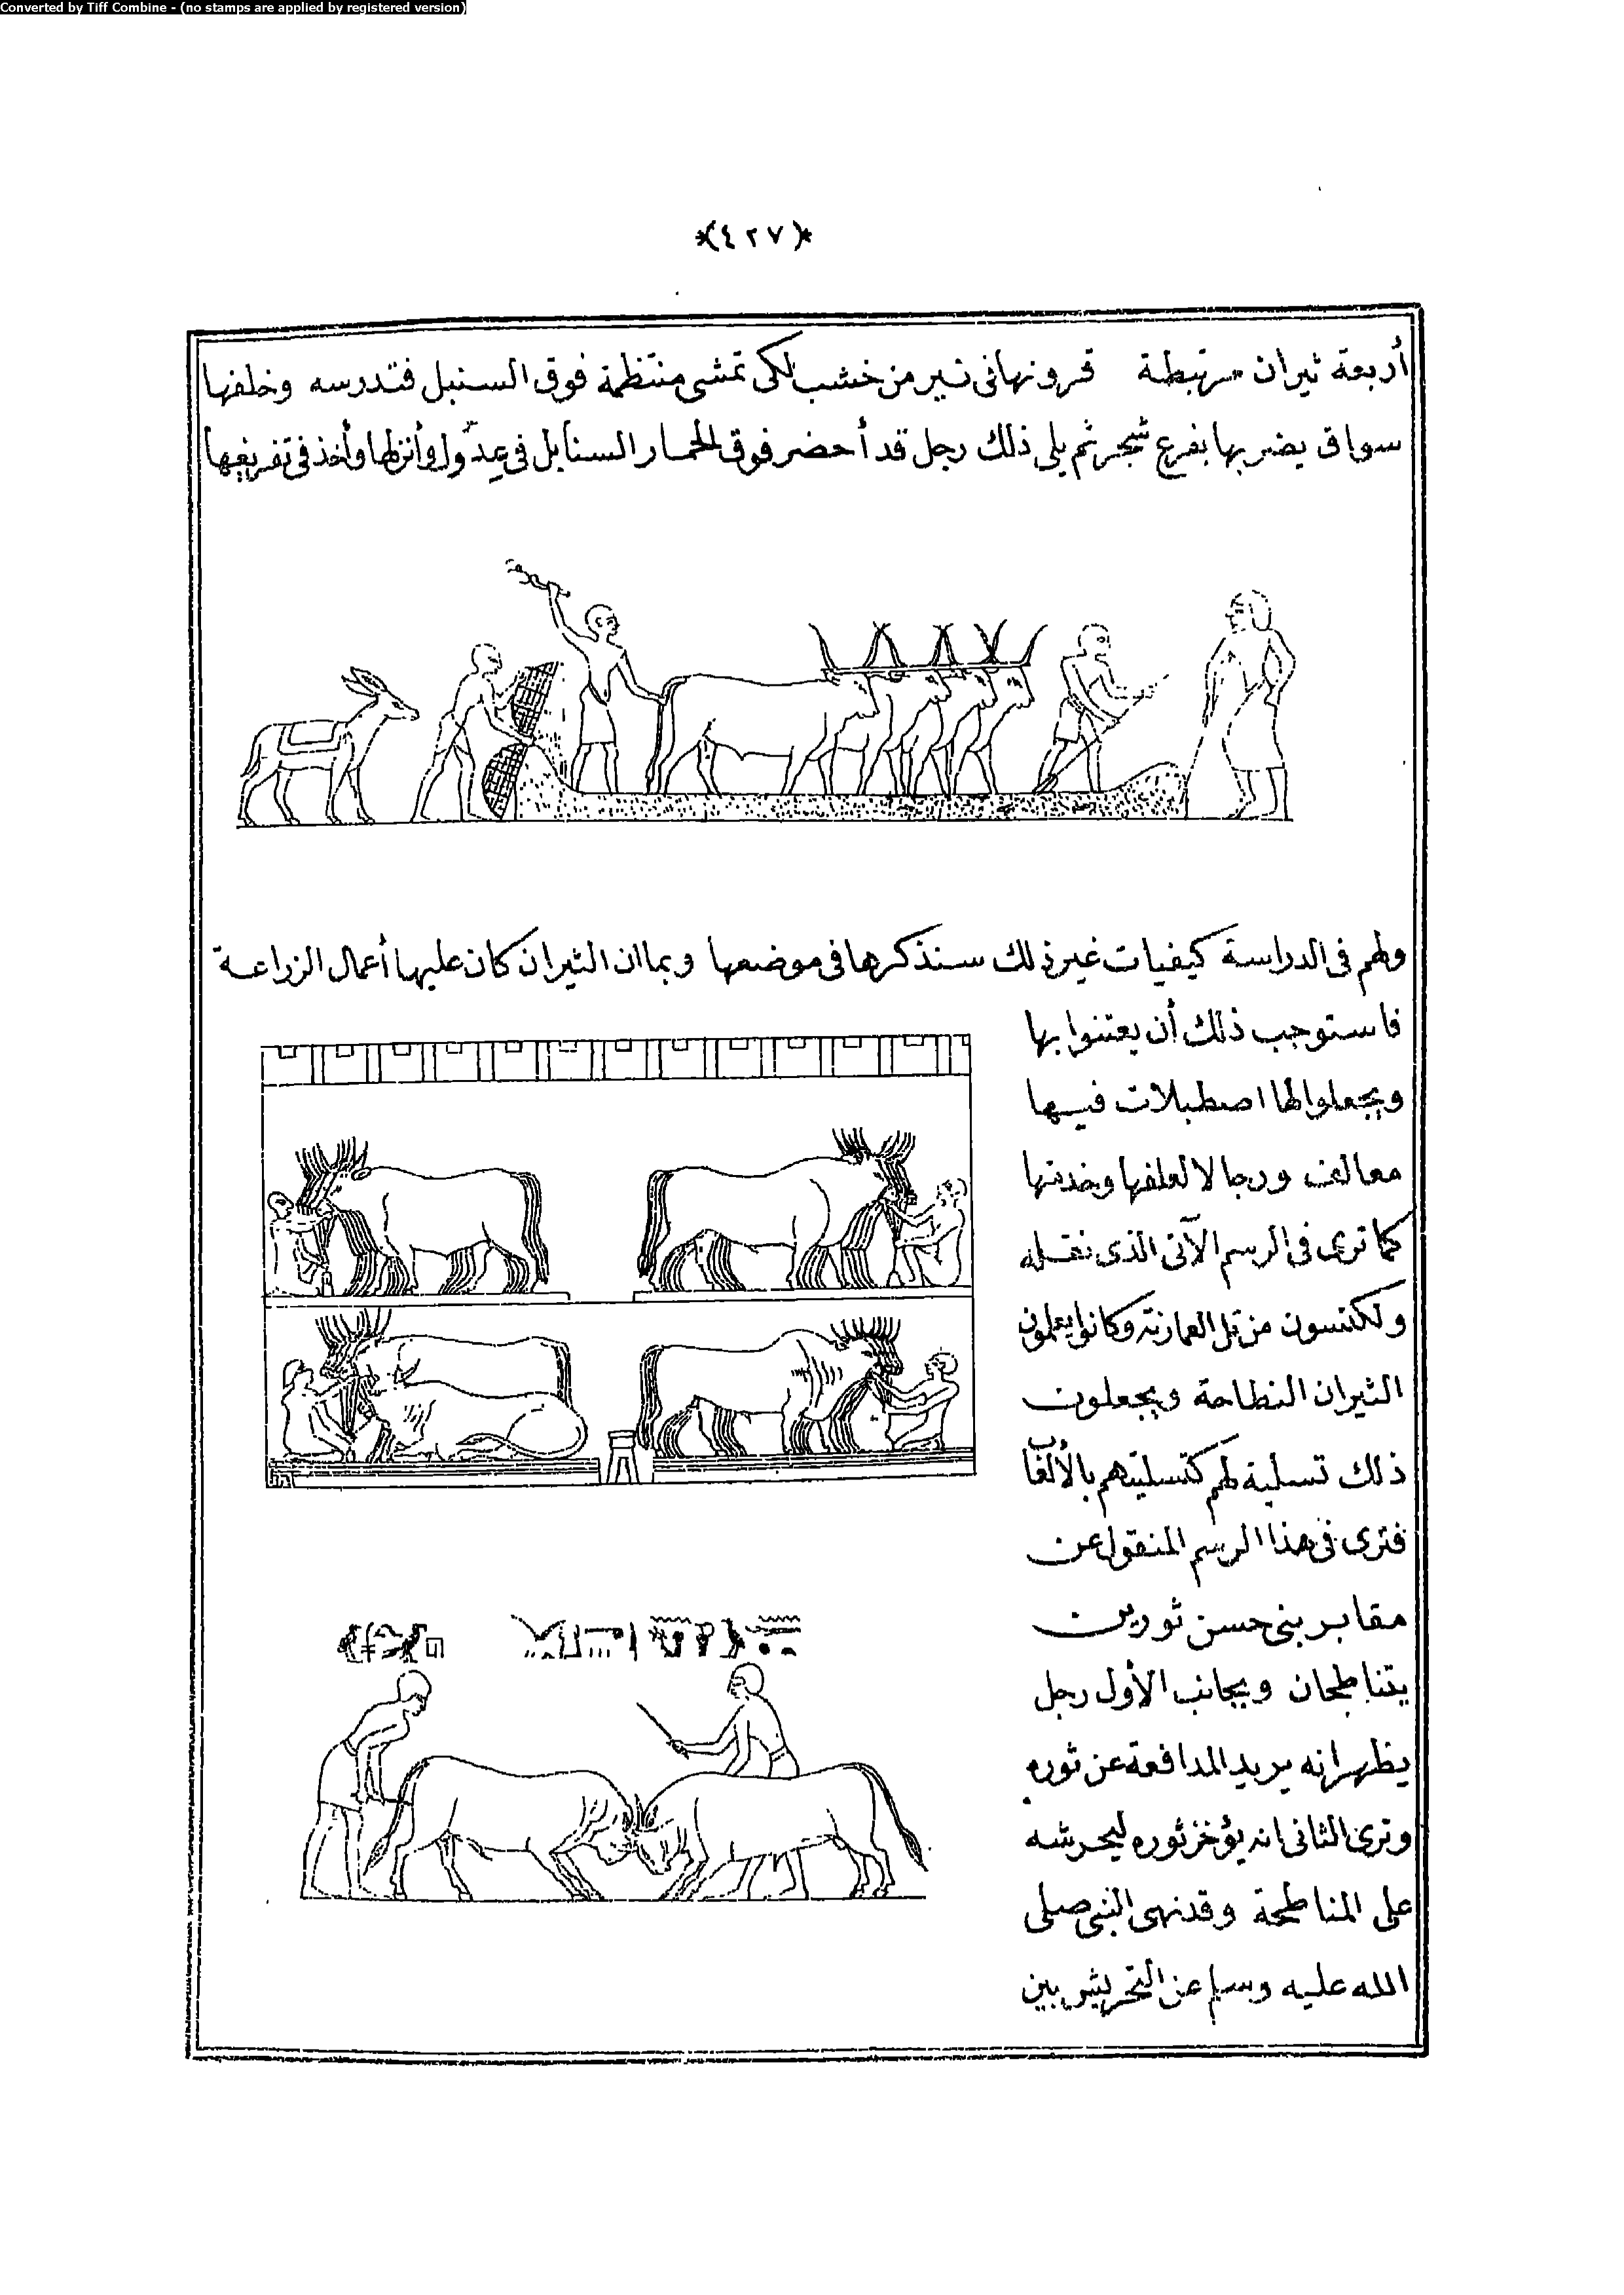 Converted by Tiff Combine - (no stamps are applied by registered version)
*(٤٢٧)*
أربعة ثيران مرتبطة قرونها فى نير من خشب لكى تمشى منتظمة فوق السنبل فتدرسه وخلفها
سواق يضربها بفرع شجر ثم يلى ذلك رجل قد أحضر فوق الحمار السنابل فى عدول وأنزلها وأخذ فى تفريغها
ولهم فى الدراسة كيفيات غير ذلك سنذكرها فى موضعها وبما ان الثيران كان عليها أعمال الزراعة
فاستوجب ذلك أن يعتنوا بها
ويجعلوا لها اصطبلات فيها
معالف ورجالا لعلفها وخدمتها
كما ترى فى الرسم الآتى الذى نقله
ولكنسون من تل العمارنة وكانوا يعلمون
الثيران النطاحة ويجعلون
ذلك تسلية لهم كتسليتهم بالألعاب
فترى فى هذا الرسم المنقول عن
مقابر بنى حسن ثورين
يتناطحان وبجانب الأول رجل
يظهر انه يريد المدافعة عن ثوره
وترى الثانى انه يؤخز ثوره ليحرشه
على المناطحة وقد نهى النبى صلى
الله عليه وسلم عن التحريش بين